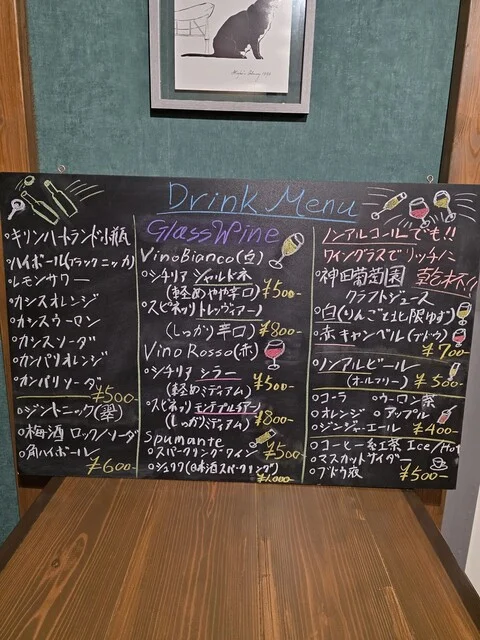 Drink Menu
。キリンハートランド小瓶
。ハイボール(ブラックニッカ)
。レモンサワー
。カシスオレンジ
。カシスウーロン
。カシスソーダ
。カンパリオレンジ
。カンパリソーダ
¥500-
。ジントニック(翠)
。梅酒 ロック/ソーダ
。角ハイボール
¥600-
Glass Wine
Vino Bianco(白)
。シチリア シャルドネ
(軽めやや辛口) ¥500-
。スピネッリ トレッヴィアーノ
(しっかり辛口) ¥800-
Vino Rosso(赤)
。シチリア シラー
(軽めミディアム) ¥500-
。スピネッリ モンテプルチアーノ
(しっかりミディアム) ¥800-
Spumante
。スパークリングワイン ¥500-
(日本酒スパークリング)
¥1,000-
ノンアルコールでも!!
ワイングラスでリッチに
。神田葡萄園 乾杯!!
クラフトジュース
。白(りんごと北限ゆず)
。赤 キャンベル(ブドウ)
¥700-
。ノンアルビール
(オールフリー) ¥500-
。コーラ 。ウーロン茶
。オレンジ 。アップル
。ジンジャーエール ¥400-
。コーヒー 紅茶 Ice/Hot
。マスカットサイダー
。ブドウ液 ¥500-